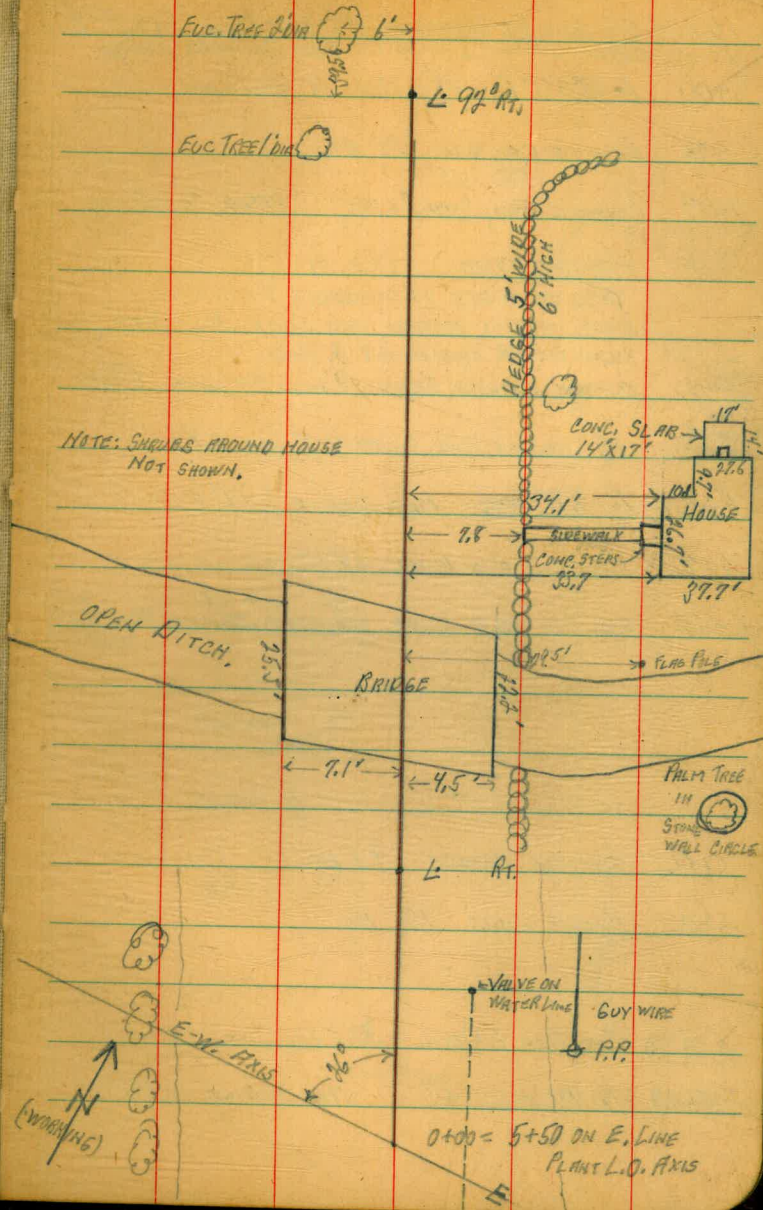 EUC. TREE 2' DIA
6'
L 92° RT.
EUC TREE 1' DIA
HEDGE 5' WIRE
6' HIGH
CONC. SLAB
14' X 17'
17'
14'
NOTE: SHRUBS AROUND HOUSE
NOT SHOWN.
27.6
9.7'
34.1'
HOUSE
26.7'
7.8
SIDEWALK
CONC. STEPS
33.7
37.7'
OPEN DITCH.
25.3'
BRIDGE
29.5'
FLAG POLE
7.1'
4.5'
PALM TREE
IN
STONE
WALL CIRCLE
L RT.
VALVE ON
WATER LINE
GUY WIRE
P.P.
E-W. AXIS
26°
N
(WORKING)
0+00 = 5+50 ON E. LINE
PLANT L.O. AXIS
E